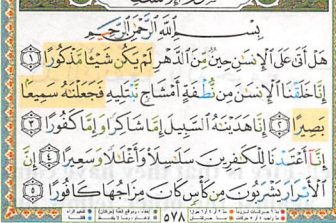 بِسْمِ ٱللَّهِ ٱلرَّحْمَٰنِ ٱلرَّحِيمِ
هَلْ أَتَىٰ عَلَى ٱلْإِنسَٰنِ حِينٌ مِّنَ ٱلدَّهْرِ لَمْ يَكُن شَيْـًٔا مَّذْكُورًا ١
إِنَّا خَلَقْنَا ٱلْإِنسَٰنَ مِن نُّطْفَةٍ أَمْشَاجٍ نَّبْتَلِيهِ فَجَعَلْنَٰهُ سَمِيعًۢا
بَصِيرًا ٢ إِنَّا هَدَيْنَٰهُ ٱلسَّبِيلَ إِمَّا شَاكِرًا وَإِمَّا كَفُورًا ٣
إِنَّآ أَعْتَدْنَا لِلْكَٰفِرِينَ سَلَٰسِلَا۟ وَأَغْلَٰلًا وَسَعِيرًا ٤ إِنَّ
ٱلْأَبْرَارَ يَشْرَبُونَ مِن كَأْسٍ كَانَ مِزَاجُهَا كَافُورًا ٥
٥٧٨